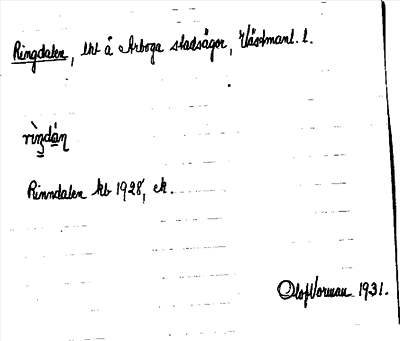 Ringdalen, lht å Arboga stadsägor, Västmanl. l.
rìŋdán
Rinndalen kb 1928, ek.
Olof Vorman 1931.